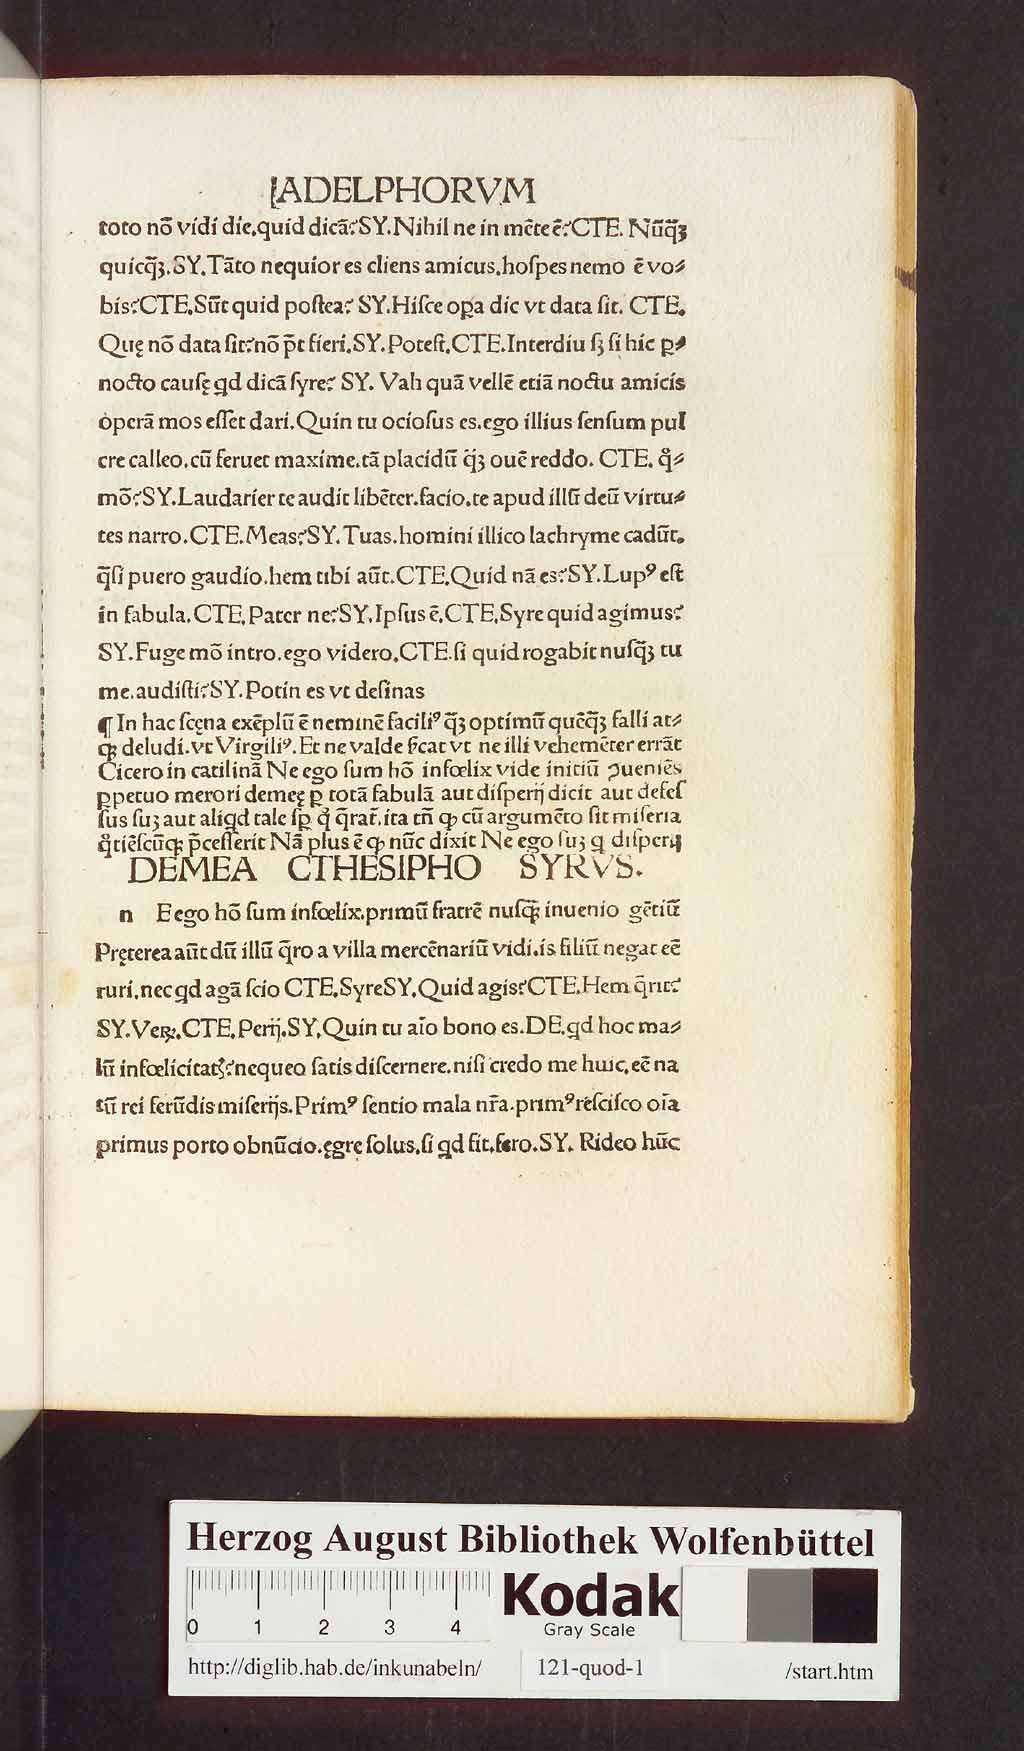 ADELPHORVM
toto nõ vidi die.quid dicã? SY.Nihil ne in mẽte ẽ? CTE. Nũq̃ꝫ
quicq̃ꝫ.SY.Tãto nequior es cliens amicus.hoſpes nemo ẽ vo⸗
bis? CTE.Sũt quid poſtea? SY.Hiſce oꝑa dic vt data ſit. CTE.
Quę nõ data ſit? nõ p̃t fieri.SY.Poteſt.CTE.Interdiu ſꝫ ſi hic ꝑ⸗
nocto cauſę qd dicã ſyre? SY. Vah quã vellẽ etiã noctu amicis
operã mos eſſet dari.Quin tu ocioſus es.ego illius ſenſum pul
cre calleo.cũ feruet maxime.tã placidũ q̃ꝫ ouẽ reddo. CTE. qͦ⸗
mõ? SY.Laudarier te audit libẽter.facio.te apud illũ deũ virtu⸗
tes narro.CTE.Meas? SY.Tuas.homini illico lachryme cadũt.
q̃ſi puero gaudio.hem tibi aũt.CTE.Quid nã es? SY.Lupꝰ eſt
in fabula.CTE.Pater ne? SY.Ipſus ẽ.CTE.Syre quid agimus?
SY.Fuge mõ intro.ego videro.CTE.ſi quid rogabit nuſq̃ꝫ tu
me.audiſti? SY.Potin es vt deſinas
¶ In hac ſcęna exẽplũ ẽ neminẽ faciliꝰ q̃ꝫ optimũ quẽq̃ꝫ falli at⸗
qꝫ deludi.vt Virgiliꝰ.Et ne valde ſ̃cat vt ne illi vehemẽter errãt
Cicero in catilinã Ne ego ſum hõ infœlix vide initiũ ꝯueniẽs
ꝑpetuo merori demeę ꝑ totã fabulã aut diſperij dicit aut defeſ
ſus ſuꝫ aut aliqd tale ſꝑ qͥ q̃rat̃.ita tñ ꝙ cũ argumẽto ſit miſeria
qͦtiẽſcũqꝫ p̃ceſſerit Nã plus ẽ ꝙ nũc dixit Ne ego ſuꝫ q diſperij
DEMEA CTHESIPHO SYRVS.
n Eego hõ ſum infœlix.primũ fratrẽ nuſq̃ꝫ inuenio gẽtiũ
Pręterea aũt dũ illũ q̃ro a villa mercẽnariũ vidi.is filiũ negat eẽ
ruri.nec qd agã ſcio CTE.SyreSY.Quid agis? CTE.Hem q̃rit?
SY.Veꝝ.CTE.Perij.SY.Quin tu aĩo bono es.DE.qd hoc ma⸗
lũ infœlicitatꝭ? nequeo ſatis diſcernere.niſi credo me huic.eẽ na
tũ rei ferũdis miſerijs.Primꝰ ſentio mala nr̃a.primꝰ reſciſco oĩa
primus porto obnũcio.ęgre ſolus.ſi qd fit.fero.SY. Rideo hũc
Herzog August Bibliothek Wolfenbüttel
0 1 2 3 4
Kodak
Gray Scale
http://diglib.hab.de/inkunabeln/ 121-quod-1 /start.htm